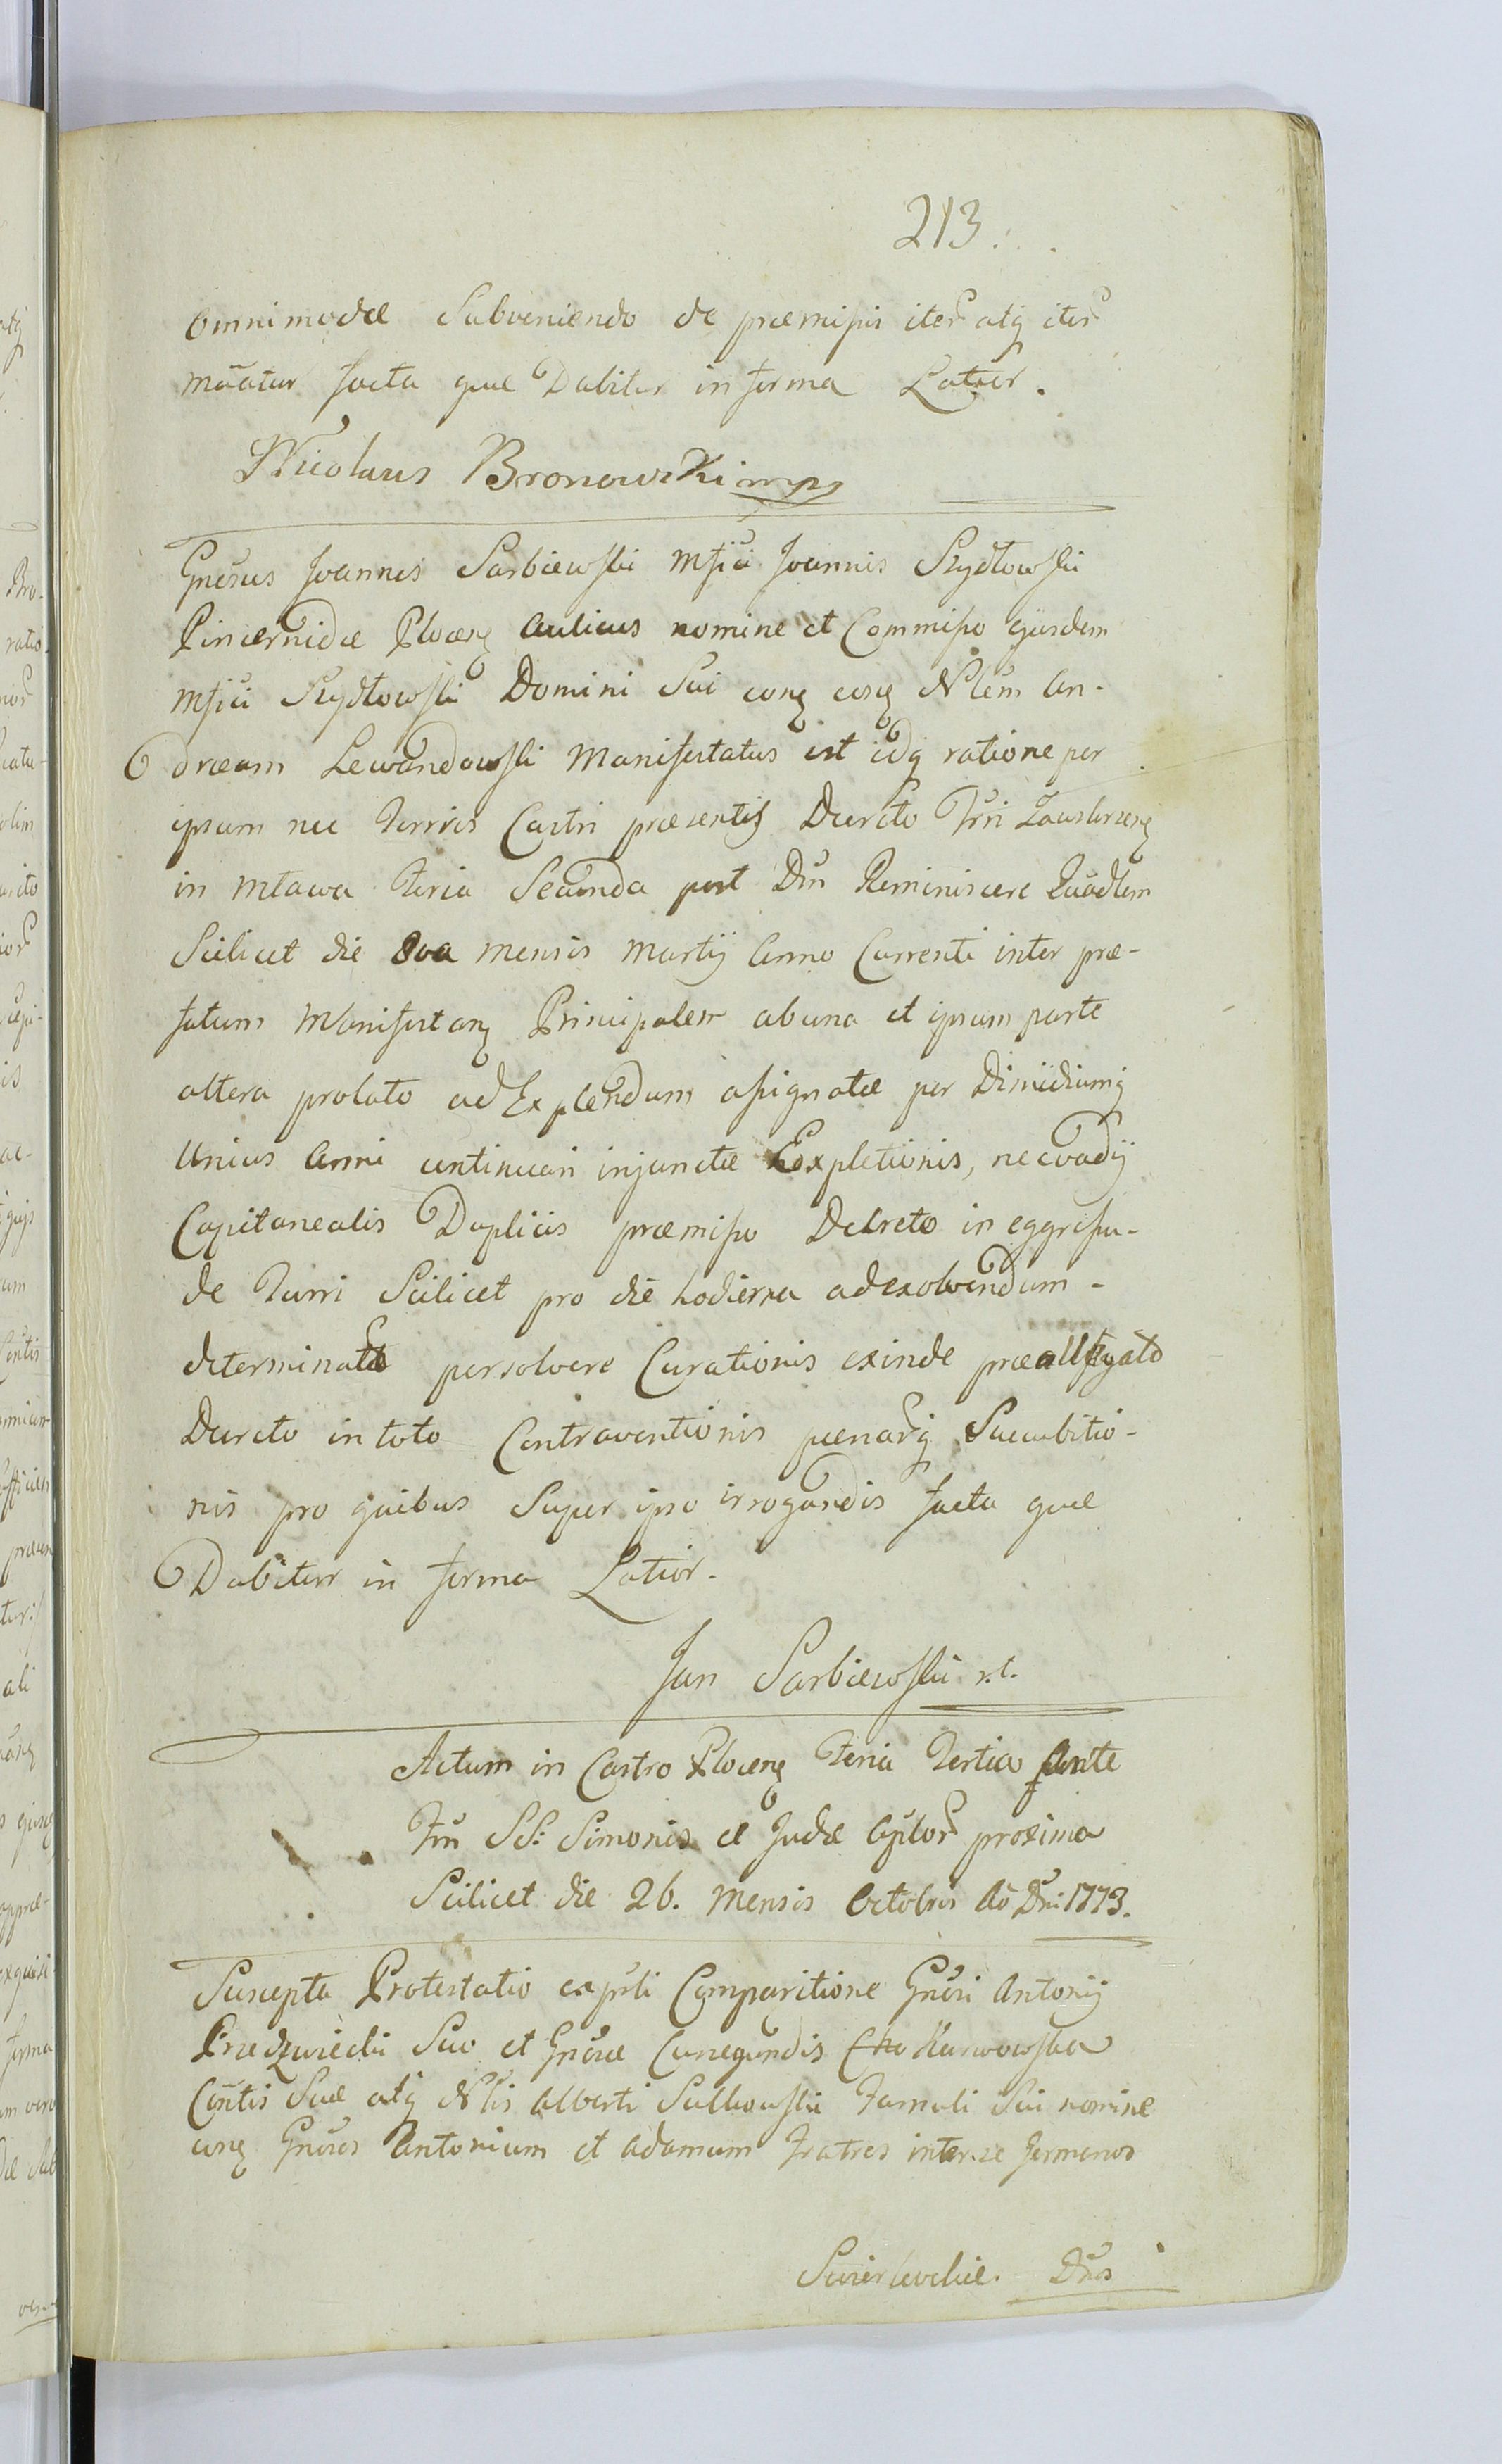 213.
omnimodæ Subveniendo de præmissis iter͂ atq iter͂
mũatur facta quæ Dabitur in forma Latior.
Nicolaus Bronowski mp
Gnosus Joannes Sarbiewski Mfici Joannis Szydłowski
Pincernidæ Plocens Aulicus nomine et Commisso ejusdem
Mfici Szydłowski Domini Sui conq corq Nlem An-
dræam Lewandowski Manifestatus est idq ratione per
ipsum nec Turris Castri præsentis Decreto Trri Zawskrzens
in Mława Feria Secunda post Dm Reminiscere Quadlem
Scilicet die 8va mensis Martij Anno Currenti inter præ-
fatum Manifestans Principalem ab una et ipsum parte
altera prolato ad Explendum assignatæ per Dimidiumq
Unius Anni continuari injunctæ Expletionis, nec vadij
Capitanealis Duplicis præmisso Decreto in eggressu-
de Turri Scilicet pro die hodierna ad exolvendum-
determinati persolvere Curationis exinde præallegato
Decreto in toto Contraventionis pœnarq Succubitio-
nis pro quibus Super ipso irrogandis facta quæ
Dabitur in forma Latior.
Jan Sarbiewski r.t.
Actum in Castro Plocens Feria Tertia Ante
Ftm SS: Simonis et Judæ Aptor͂ proxima
Scilicet die 26. Mensis Octobris Aõ Dni 1773.
Suscepta Protestatio ex pnti Comparitione Gnosi Antonij
Przedzwiecki Suo et Gnosæ Cunegundis Karwowska
Contis Suæ atq Nlis Alberti Sulkowski Famuli Sui nomine
conq Gnosos Antonium et Adamum Fratres inter se Germanos
Swierkockie. Dnos